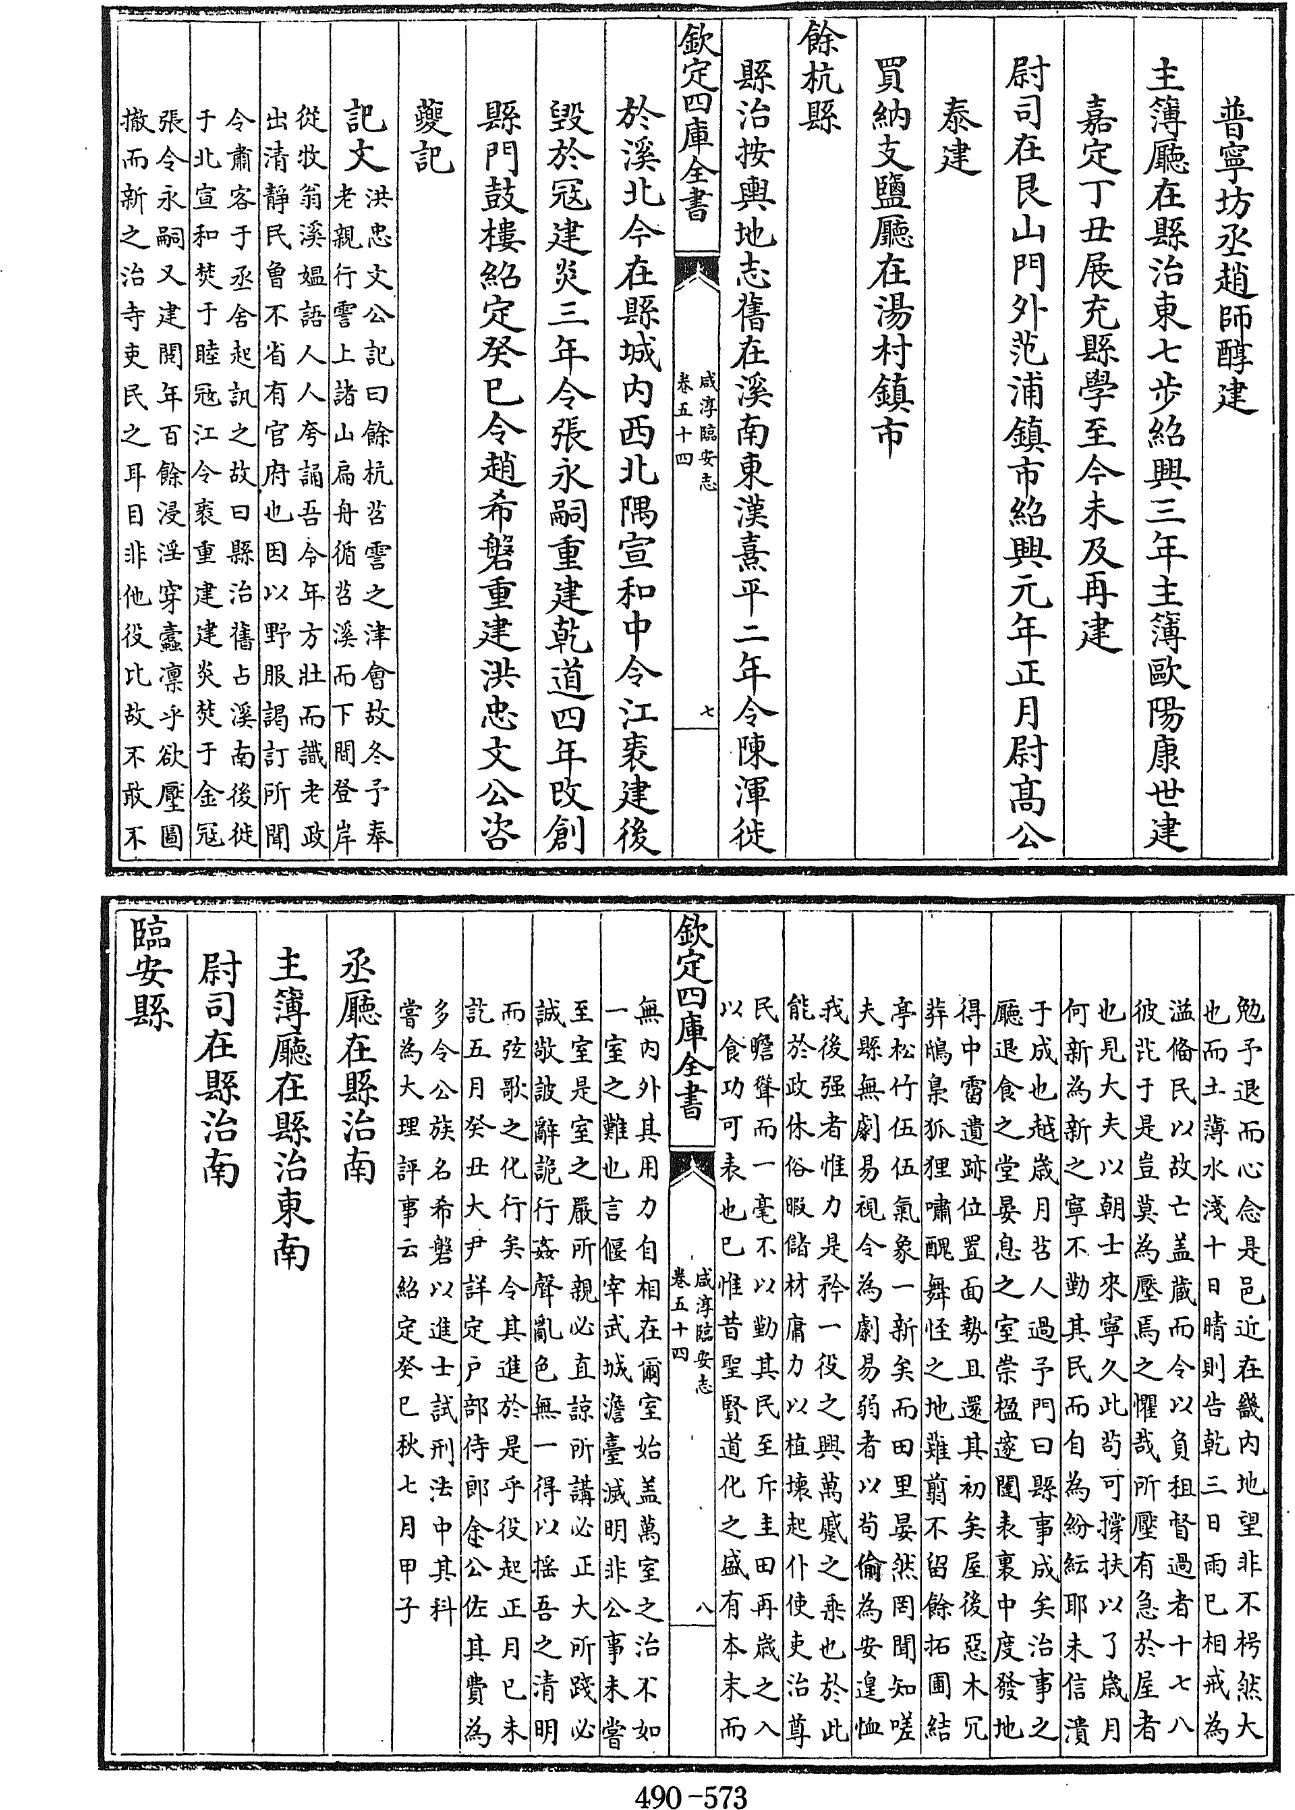 普寧坊丞趙師醇建
主簿廳在縣治東七步紹興三年主簿歐陽康世建
嘉定丁丑展充縣學至今未及再建
尉司在艮山門外范浦鎮市紹興元年正月尉高公
泰建
買納支鹽廳在湯村鎮市
餘杭縣
縣治按輿地志舊在溪南東漢熹平二年令陳渾徙
欽定四庫全書
咸淳臨安志
卷五十四
七
於溪北今在縣城內西北隅宣和中令江袤建後
毀於冦建炎三年令張永嗣重建乾道四年改創
縣門鼓樓紹定癸巳令趙希磐重建洪忠文公咨
夔記
記文
洪忠文公記曰餘杭苕霅之津會故冬予奉
老親行霅上諸山扁舟循苕溪而下間登岸
從牧翁溪媼語人人夸誦吾令年方壯而識老政
出清靜民㑹不省有官府也因以野服謁訂所聞
令肅客于丞舍起訊之故曰縣治舊占溪南後徙
于北宣和焚于睦冦江令袤重建建炎焚于金冦
張令永嗣又建閱年百餘浸淫穿蠹凜乎欲壓圖
撤而新之治寺吏民之耳目非他役比故不敢不
勉予退而心念是邑近在畿內地望非不楞然大
也而土薄水淺十日晴則告乾三日雨已相戒為
溢俻民以故亡盖藏而令以負租督過者十七八
彼沘于是豈莫為壓焉之懼哉所壓有急於屋者
也見大夫以朝士來寧久此苟可撐扶以了歲月
何新為新之寧不勤其民而自為紛紜耶未信潰
于成也越歲月苕人過予門曰縣事成矣治事之
廳退食之堂晏息之室崇楹邃闥表裏中度發地
得中霤遺跡位置面勢且還其初矣屋後惡木冗
莽鴟梟狐狸嘯醜舞怪之地薙翦不留餘拓圃結
亭松竹伍伍氣象一新矣而田里晏然罔聞知嗟
夫縣無劇易視令為劇易弱者以苟偷為安遑恤
我後强者惟力是矜一役之興萬蹙之乗也於此
能於政休俗暇儲材庸力以植壊起仆使吏治尊
民瞻聳而一毫不以勤其民至斥圭田再歲之入
以食功可表也已惟昔聖賢道化之盛有本末而
欽定四庫全書
咸淳臨安志
卷五十四
八
無內外其用力自相在爾室始盖萬室之治不如
一室之難也言偃宰武城澹臺滅明非公事未嘗
至室是室之嚴所親必直諒所講必正大所踐必
誠敬詖辭詭行姦聲亂色無一得以揺吾之清明
而弦歌之化行矣令其進於是乎役起正月巳未
訖五月癸丑大尹詳定戶部侍郎余公佐其費為
多令公族名希磐以進士試刑法中其科
嘗為大理評事云紹定癸巳秋七月甲子
丞廳在縣治南
主簿廳在縣治東南
尉司在縣治南
臨安縣
490-573